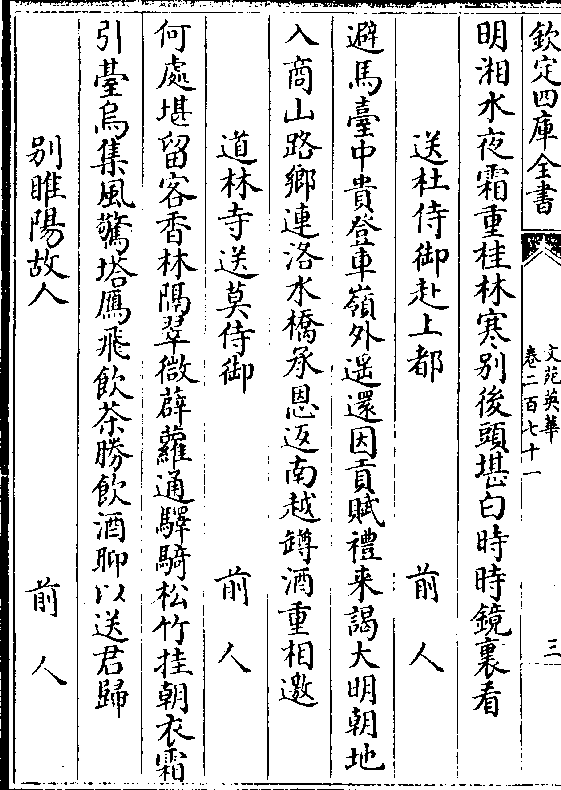 欽定四庫全書
文苑英華
卷二百七十一
三
明湘水夜霜重桂林寒别後頭堪白時時鏡裏看
送杜侍御赴上都 前人
避馬臺中貴登車嶺外遥還因貢賦禮来謁大明朝地
入商山路鄉連洛水橋承恩返南越罇酒重相邀
道林寺送莫侍御 前人
何處堪留客香林隔翠微薜蘿通驛騎松竹挂朝衣霜
引臺烏集風驚塔鴈飛飲茶勝飲酒聊以送君歸
别睢陽故人 前人